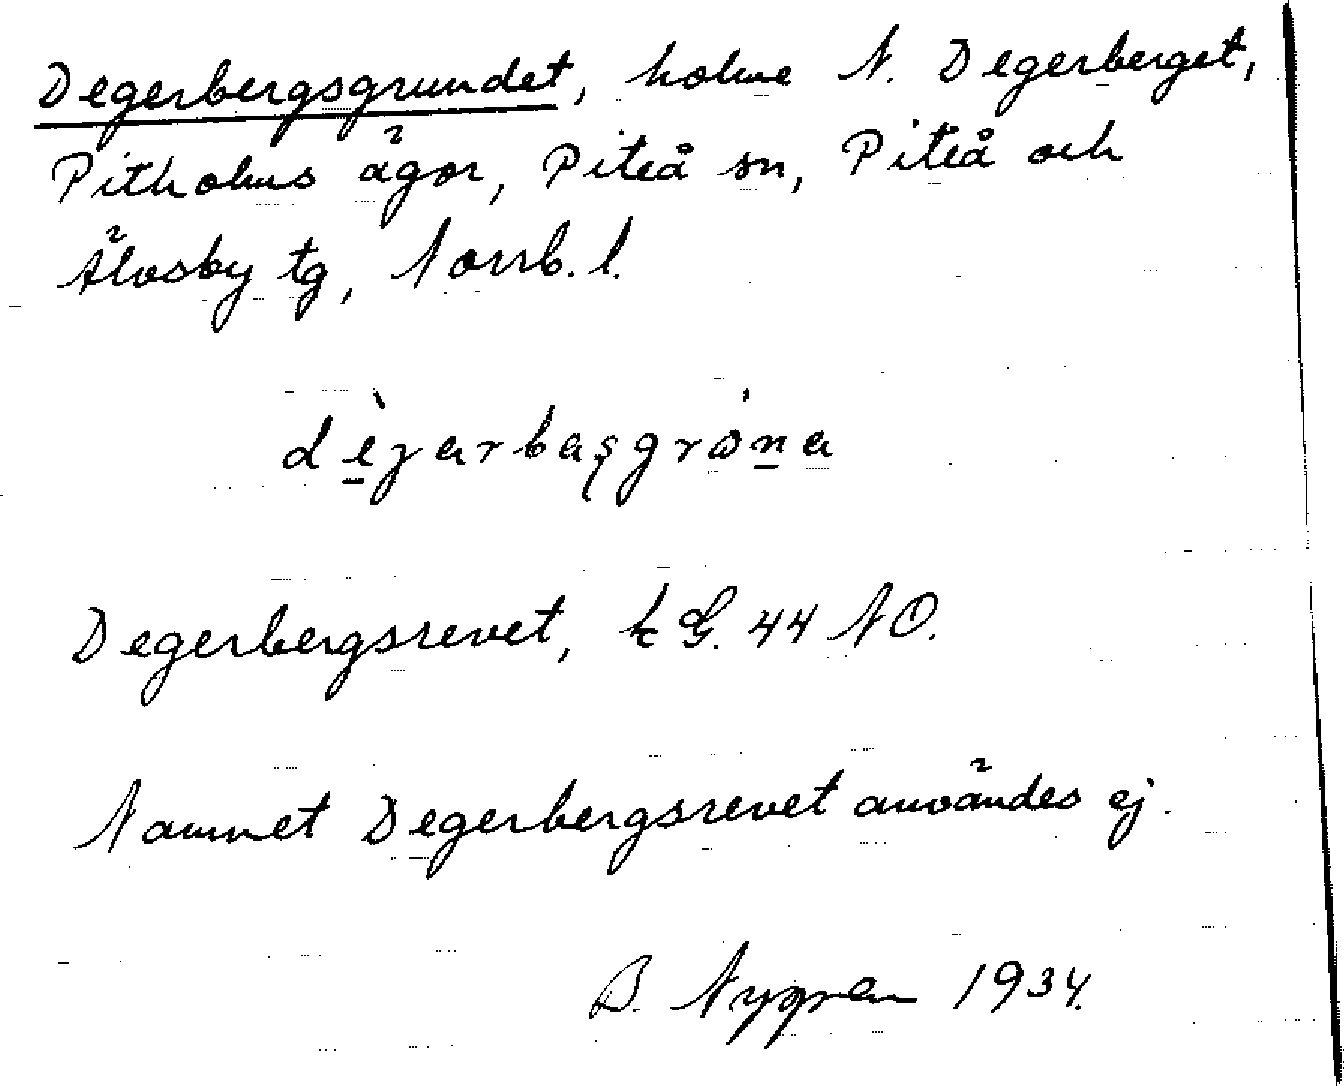 Degerbergsgrundet, holme N. Degerberget,
Pitholms ägor, Piteå sn, Piteå och
Älvsby tg, Norrb. l.
Degerbergsrevet, kG. 44 NO.
Namnet Degerbergsrevet användes ej.
B. Nygren 1934.